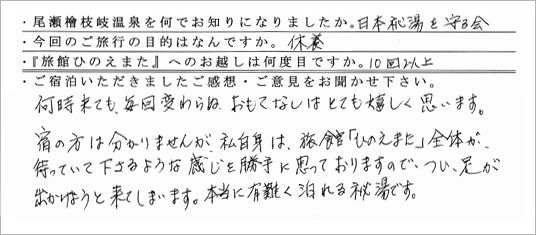 ・尾瀬檜枝岐温泉を何でお知りになりましたか。日本秘湯を守る会
・今回のご旅行の目的はなんですか。 休養
・『旅館ひのえまた』へのお越しは何度目ですか。10回以上
・ご宿泊いただきましたご感想・ご意見をお聞かせ下さい。
何時来ても、毎回変わらぬ、おもてなしはとても嬉しく思います。
宿の方は分かりませんが、私自身は、旅館「ひのえまた」全体が、
待っていて下さるような感じを勝手に思っておりますので、つい、足が
出かけようと来てしまいます。本当に有難く泊れる秘湯です。